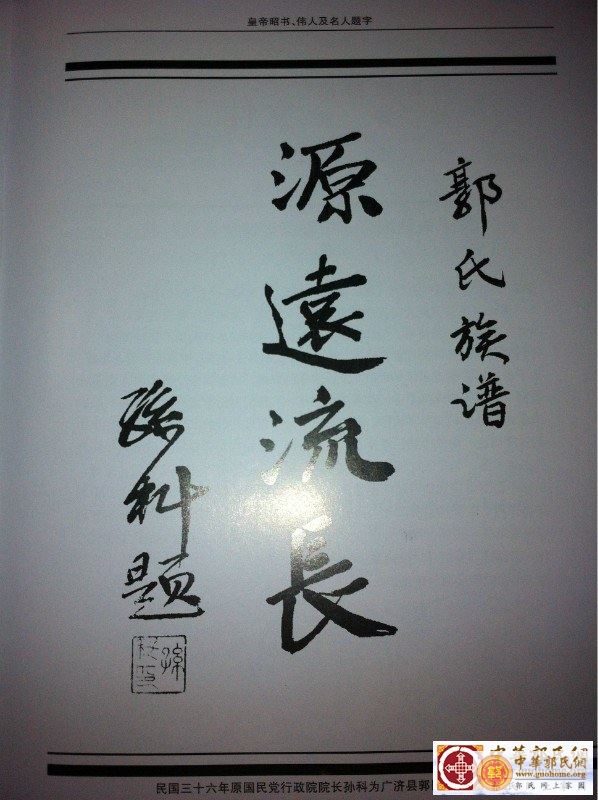 皇帝昭书、伟人及名人题字
郭氏族谱
源遠流長
孫科题
民国三十六年原国民党行政院院长孙科为广济县郭
中華郭氏網
www.guohome.net
郭氏网上家园